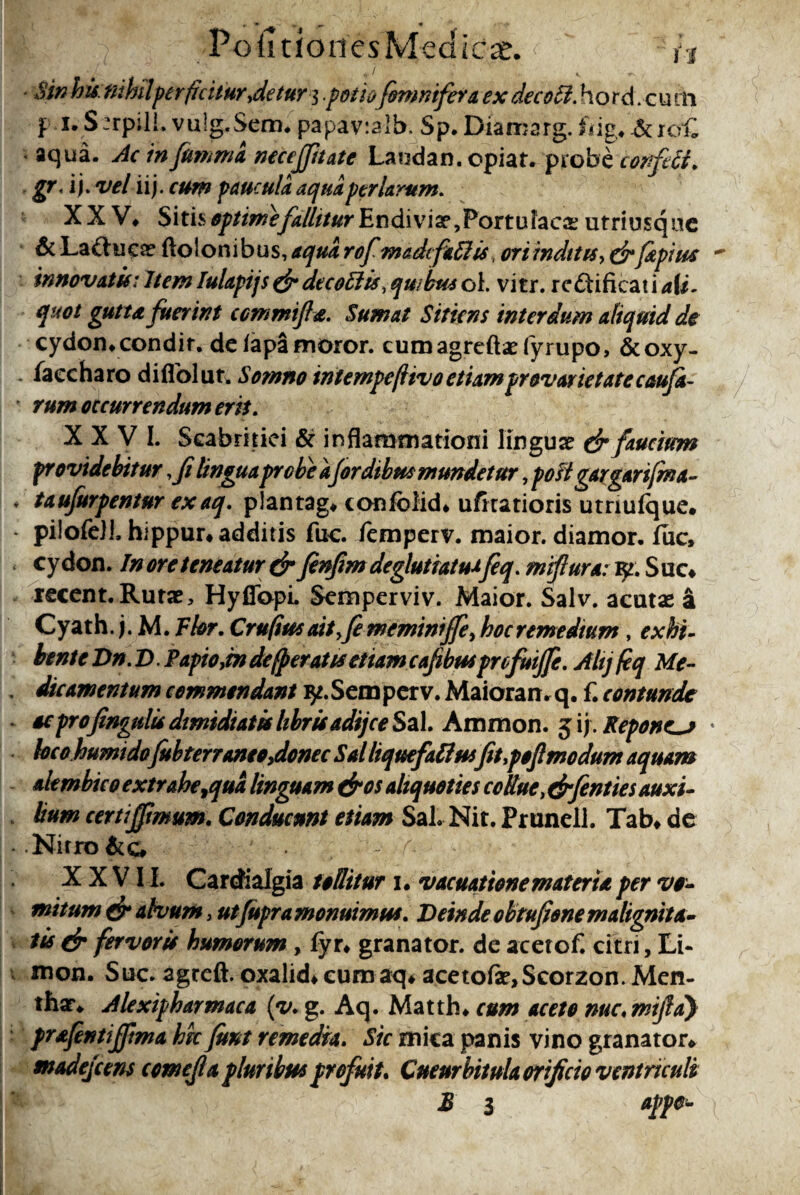 Poſitiones Medicæ. 11
Sin his nihil perficitur, detur ʒ. potio ſomnifera ex decoct. hord. cum
p 1. Serpill. vulg. Sem. papav: alb. Sp. Diamarg. frig. & roſ.
aquâ. Ac in ſummâ neceſſitate Laudan. opiat. probè confect.
gr. ij. vel iij. cum pauculâ aquâ perlarum.
XXV. Sitis optimè fallitur Endiviæ, Portulacæ utriusque
& Lactucæ ſtolonibus, aquâ roſ. madefactis, ori inditis, & ſæpius
innovatis: Item Iulapijs & decoctis, quibus ol. vitr. rectificati ali-
quot guttæ fuerint commiſtæ. Sumat Sitiens interdum aliquid de
cydon. condit. de ſapâ moror. cum agreſtæ ſyrupo, & oxy-
ſaccharo diſſolut. Somno intempeſtivo etiam pro varietate cauſa-
rum occurrendum erit.
XXVI. Scabritiei & inflammationi linguæ & faucium
providebitur, ſi lingua probè à ſordibus mundetur, poſt gargariſma-
ta uſurpentur ex aq. plantag. conſolid. uſitatioris utriuſque.
piloſell. hippur. additis ſuc. ſemperv. maior. diamor. ſuc,
cydon. In ore teneatur & ſenſim deglutiatur ſeq. miſtura: ℞. Suc.
recent. Rutæ, Hyſſopi. Semperviv. Maior. Salv. acutæ â
Cyath. j. M. Flor. Cruſius ait, ſe meminiſſe, hoc remedium, exhi-
bente Dn. D. Papio, in deſperatis etiam caſibus profuiſſe. Alij ſeq Me-
dicamentum commendant ℞. Semperv. Maioran. q. ſ. contunde
ac pro ſingulis dimidiatis libris adijce Sal. Ammon. ʒ ij. Repone
loco humido ſubterraneo, donec Sal liquefactus ſit, poſtmodum aquam
alembico extrahe, quâ linguam & os aliquoties collue, & ſenties auxi-
lium certiſſimum. Conducunt etiam Sal. Nit. Prunell. Tab. de
Nitro &c.
XXVII. Cardialgia tollitur 1. vacuatione materiæ per vo-
mitum & alvum, ut ſupra monuimus. Deinde obtuſione malignita-
tis & fervoris humorum, ſyr. granator. de acetoſ. citri, Li-
mon. Suc. agreſt. oxalid. cum aq. acetoſæ, Scorzon. Men-
thæ. Alexipharmaca (v. g. Aq. Matth. cum aceto nuc. miſta)
præſentiſſima hîc ſunt remedia. Sic mica panis vino granator.
madeſcens comeſta pluribus profuit. Cucurbitula orificio ventriculi
B 3 appo-